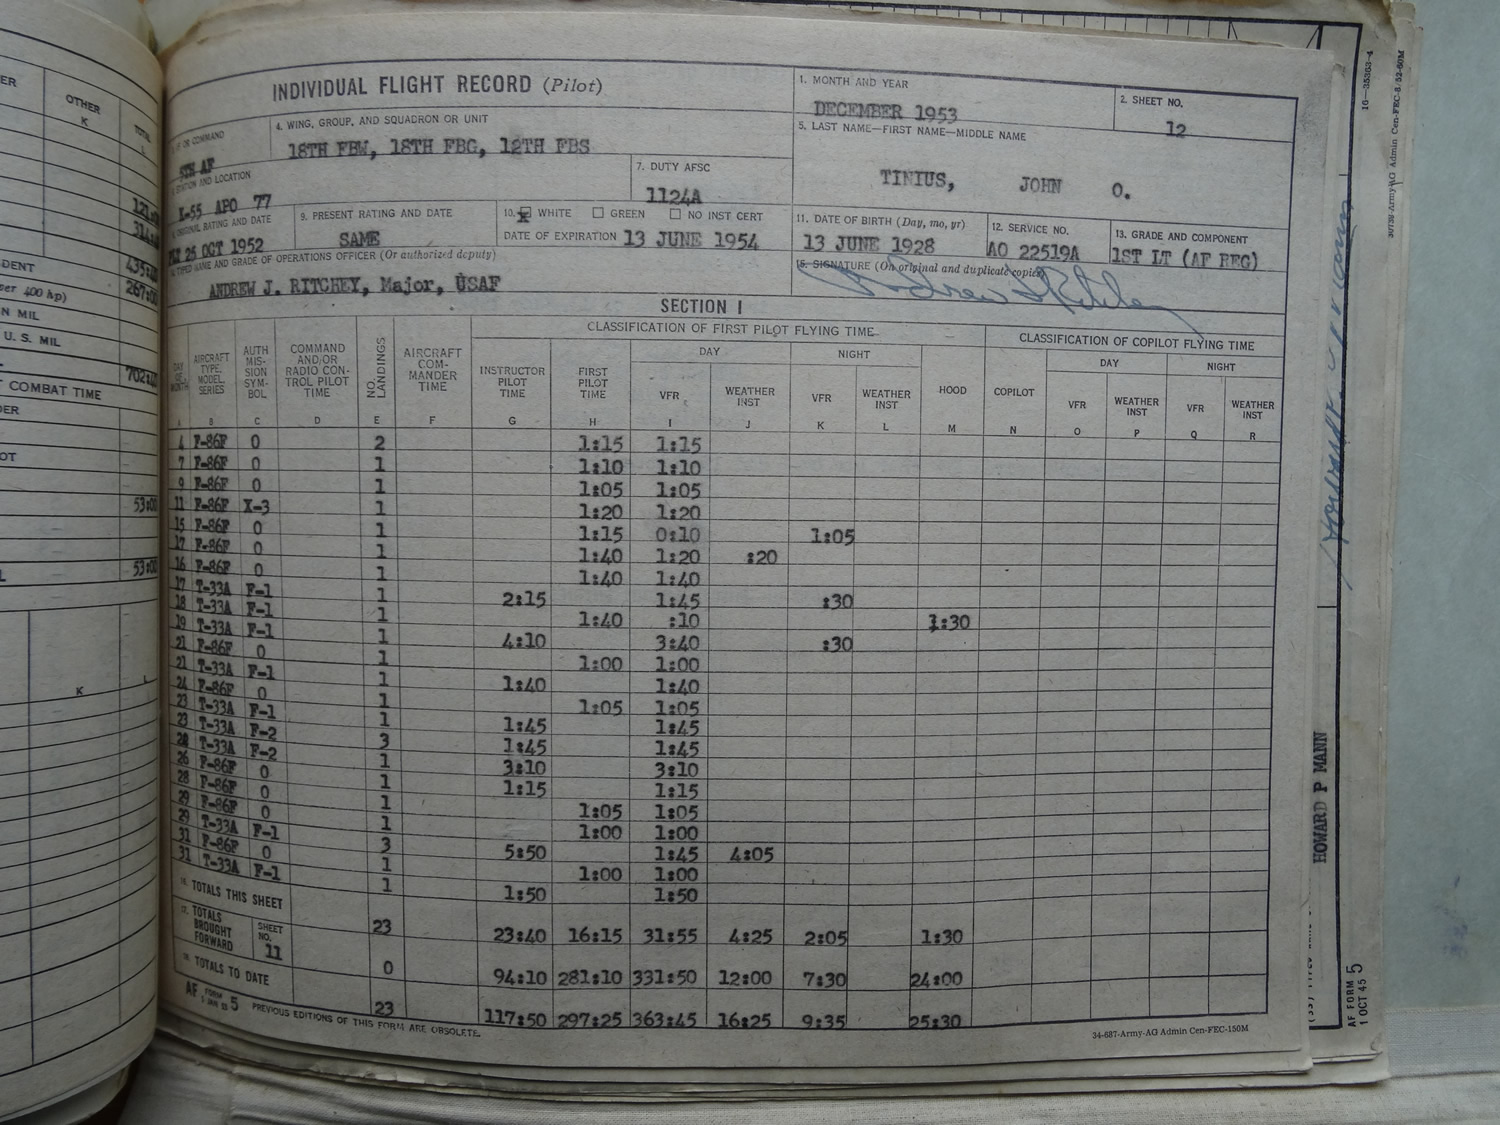 INDIVIDUAL FLIGHT RECORD (Pilot)
1. MONTH AND YEAR
DECEMBER 1953
2. SHEET NO.
12
OR COMMAND
5TH AF
4. WING, GROUP, AND SQUADRON OR UNIT
18TH FBW, 18TH FBG, 12TH FBS
5. LAST NAME—FIRST NAME—MIDDLE NAME
TINIUS, JOHN O.
STATION AND LOCATION
K-55 APO 77
7. DUTY AFSC
1124A
ORIGINAL RATING AND DATE
25 OCT 1952
9. PRESENT RATING AND DATE
SAME
10. WHITE GREEN NO INST CERT
DATE OF EXPIRATION 13 JUNE 1954
11. DATE OF BIRTH (Day, mo, yr)
13 JUNE 1928
12. SERVICE NO.
AO 22519A
13. GRADE AND COMPONENT
1ST LT (AF REG)
TYPED NAME AND GRADE OF OPERATIONS OFFICER (Or authorized deputy)
ANDREW J. RITCHEY, Major, USAF
15. SIGNATURE (On original and duplicate copies)
SECTION I
CLASSIFICATION OF FIRST PILOT FLYING TIME
CLASSIFICATION OF COPILOT FLYING TIME
DAY NIGHT DAY NIGHT
DAY OF MONTH AIRCRAFT TYPE, MODEL, SERIES AUTH MISSION SYMBOL COMMAND AND/OR RADIO CONTROL PILOT TIME NO. LANDINGS AIRCRAFT COMMANDER TIME INSTRUCTOR PILOT TIME FIRST PILOT TIME VFR WEATHER INST VFR WEATHER INST HOOD COPILOT VFR WEATHER INST VFR WEATHER INST
A B C D E F G H I J K L M N O P Q R
4 F-86F O 2 1:15 1:15
7 F-86F O 1 1:10 1:10
9 F-86F O 1 1:05 1:05
11 F-86F X-3 1 1:20 1:20
15 F-86F O 1 1:15 0:10 1:05
17 F-86F O 1 1:40 1:20 :20
16 F-86F O 1 1:40 1:40
17 T-33A F-1 1 2:15 1:45 :30
18 T-33A F-1 1 1:40 :10 1:30
19 T-33A F-1 1 4:10 3:40 :30
21 F-86F O 1 1:00 1:00
21 T-33A F-1 1 1:40 1:40
24 F-86F O 1 1:05 1:05
23 T-33A F-1 1 1:45 1:45
23 T-33A F-2 3 1:45 1:45
28 T-33A F-2 1 3:10 3:10
26 F-86F O 1 1:15 1:15
28 F-86F O 1 1:05 1:05
29 F-86F O 1 1:00 1:00
29 T-33A F-1 3 5:50 1:45 4:05
31 F-86F O 1 1:00 1:00
31 T-33A F-1 1 1:50 1:50
TOTALS THIS SHEET 23 23:40 16:15 31:55 4:25 2:05 1:30
17. TOTALS BROUGHT FORWARD SHEET NO. 11 0 94:10 281:10 331:50 12:00 7:30 24:00
TOTALS TO DATE 23 117:50 297:25 363:45 16:25 9:35 25:30
AF FORM 5 PREVIOUS EDITIONS OF THIS FORM ARE OBSOLETE.
34-687-Army-AG Admin Cen-FEC-150M
OTHER
K
TOTAL
400 hp)
N MIL
U. S. MIL
COMBAT TIME
53:00
53:00
K
HOWARD P MANN
AF FORM 5
1 OCT 45
16—35363-4